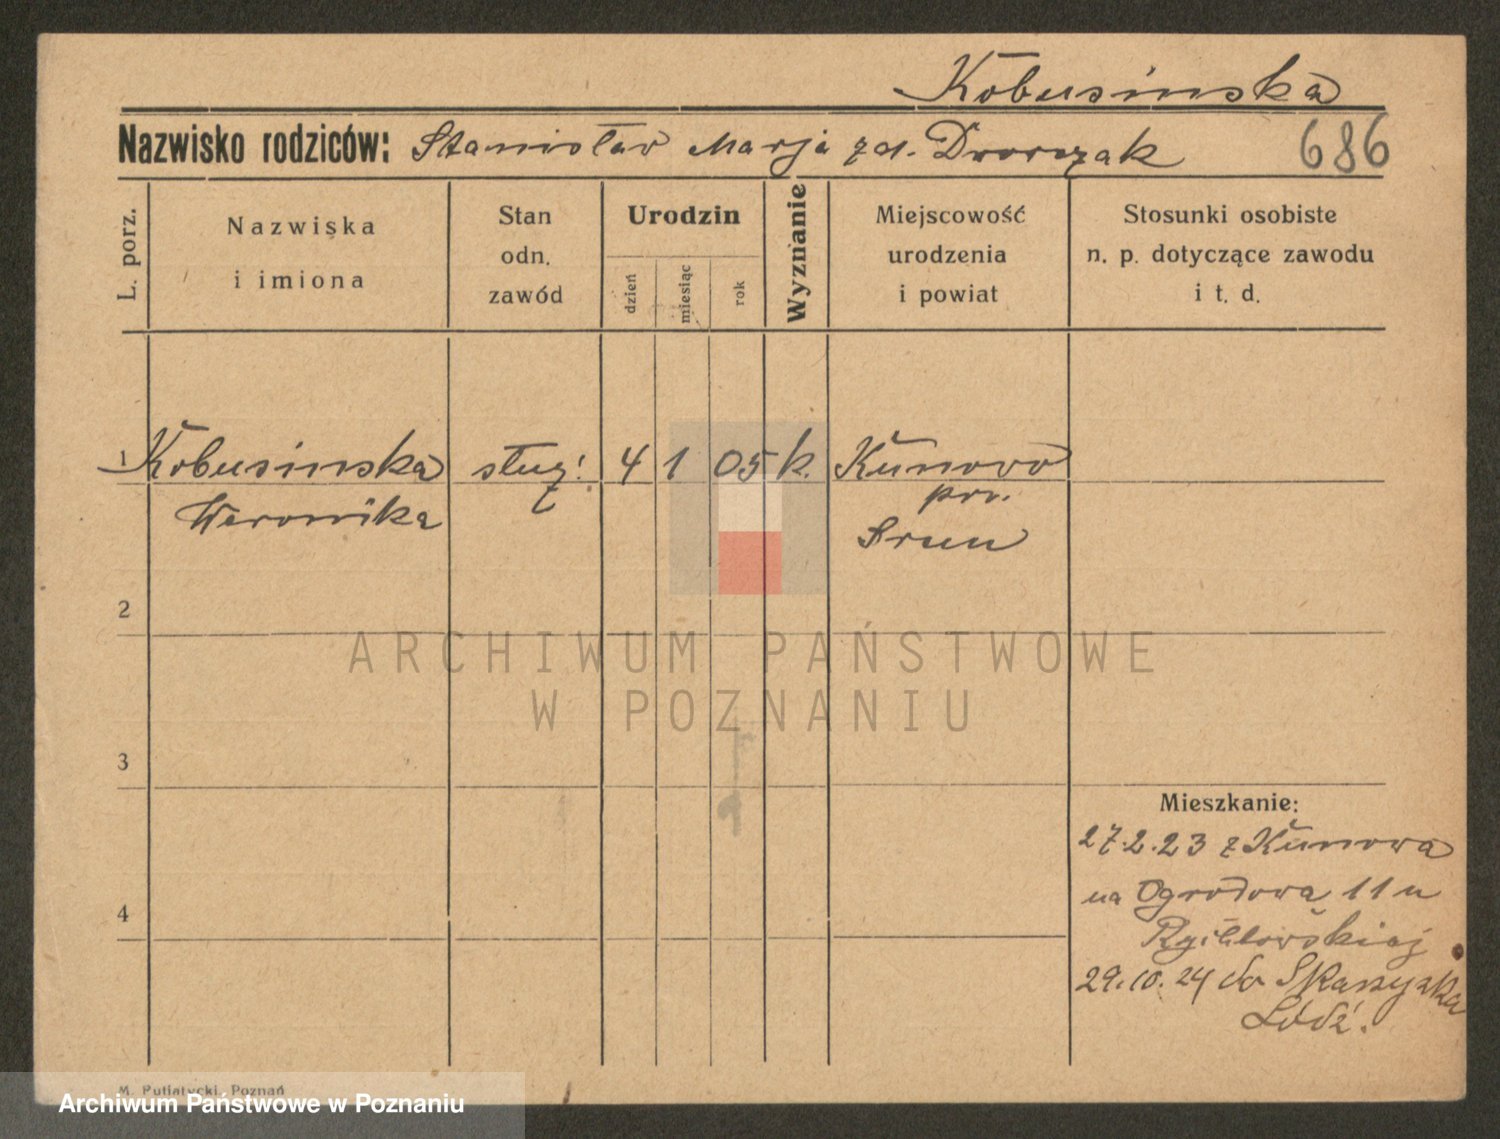 Kobusinska
Nazwisko rodziców: Stanisław Marja zd. Dworczak 686
L. porz.
Nazwiska
i imiona
Stan
odn.
zawód
Urodzin
dzień
miesiąc
rok
Wyznanie
Miejscowość
urodzenia
i powiat
Stosunki osobiste
n. p. dotyczące zawodu
i t. d.
1 Kobusinska służ. 4 1 05 k. Kunowo
Weronika pow.
Srem
2
3
4
Mieszkanie:
27.2.23 z Kunowa
na Ogrodowa 11 u
29.10.24 do
Łódź.
M. Putiatycki, Poznań
ARCHIWUM PAŃSTWOWE
W POZNANIU
Archiwum Państwowe w Poznaniu